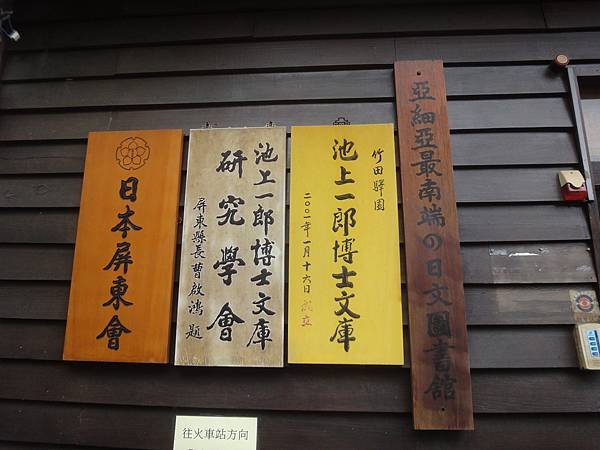 亞細亞最南端の日文圖書館
竹田驛園
池上一郎博士文庫
二〇〇一年一月十六日 成立
池上一郎博士文庫
研究學會
屏東縣長曹啟鴻題
日本屏東會
往火車站方向